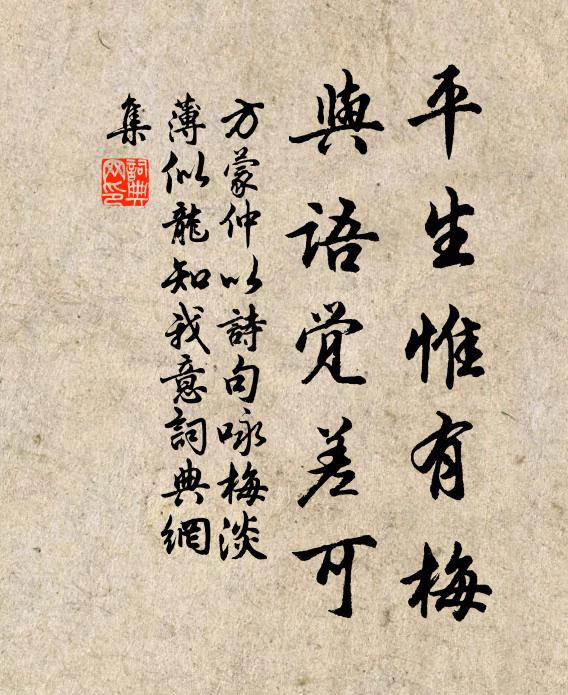 平生惟有梅
與語覚差可
方蒙仲以詩句咏梅淡
薄似龍知我意詞典網
集
詞典
网印